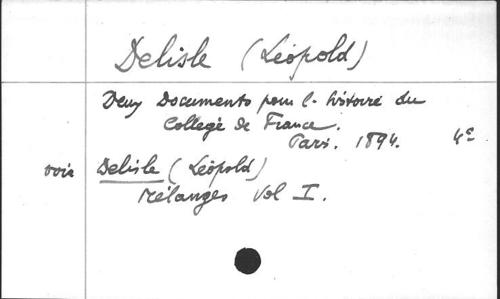 Delisle (Léopold)
Deux Documents pour l- histoire du
Collège de France.
Paris. 1894. 4º
voir Delisle (Léopold)
Mélanges Vol I.